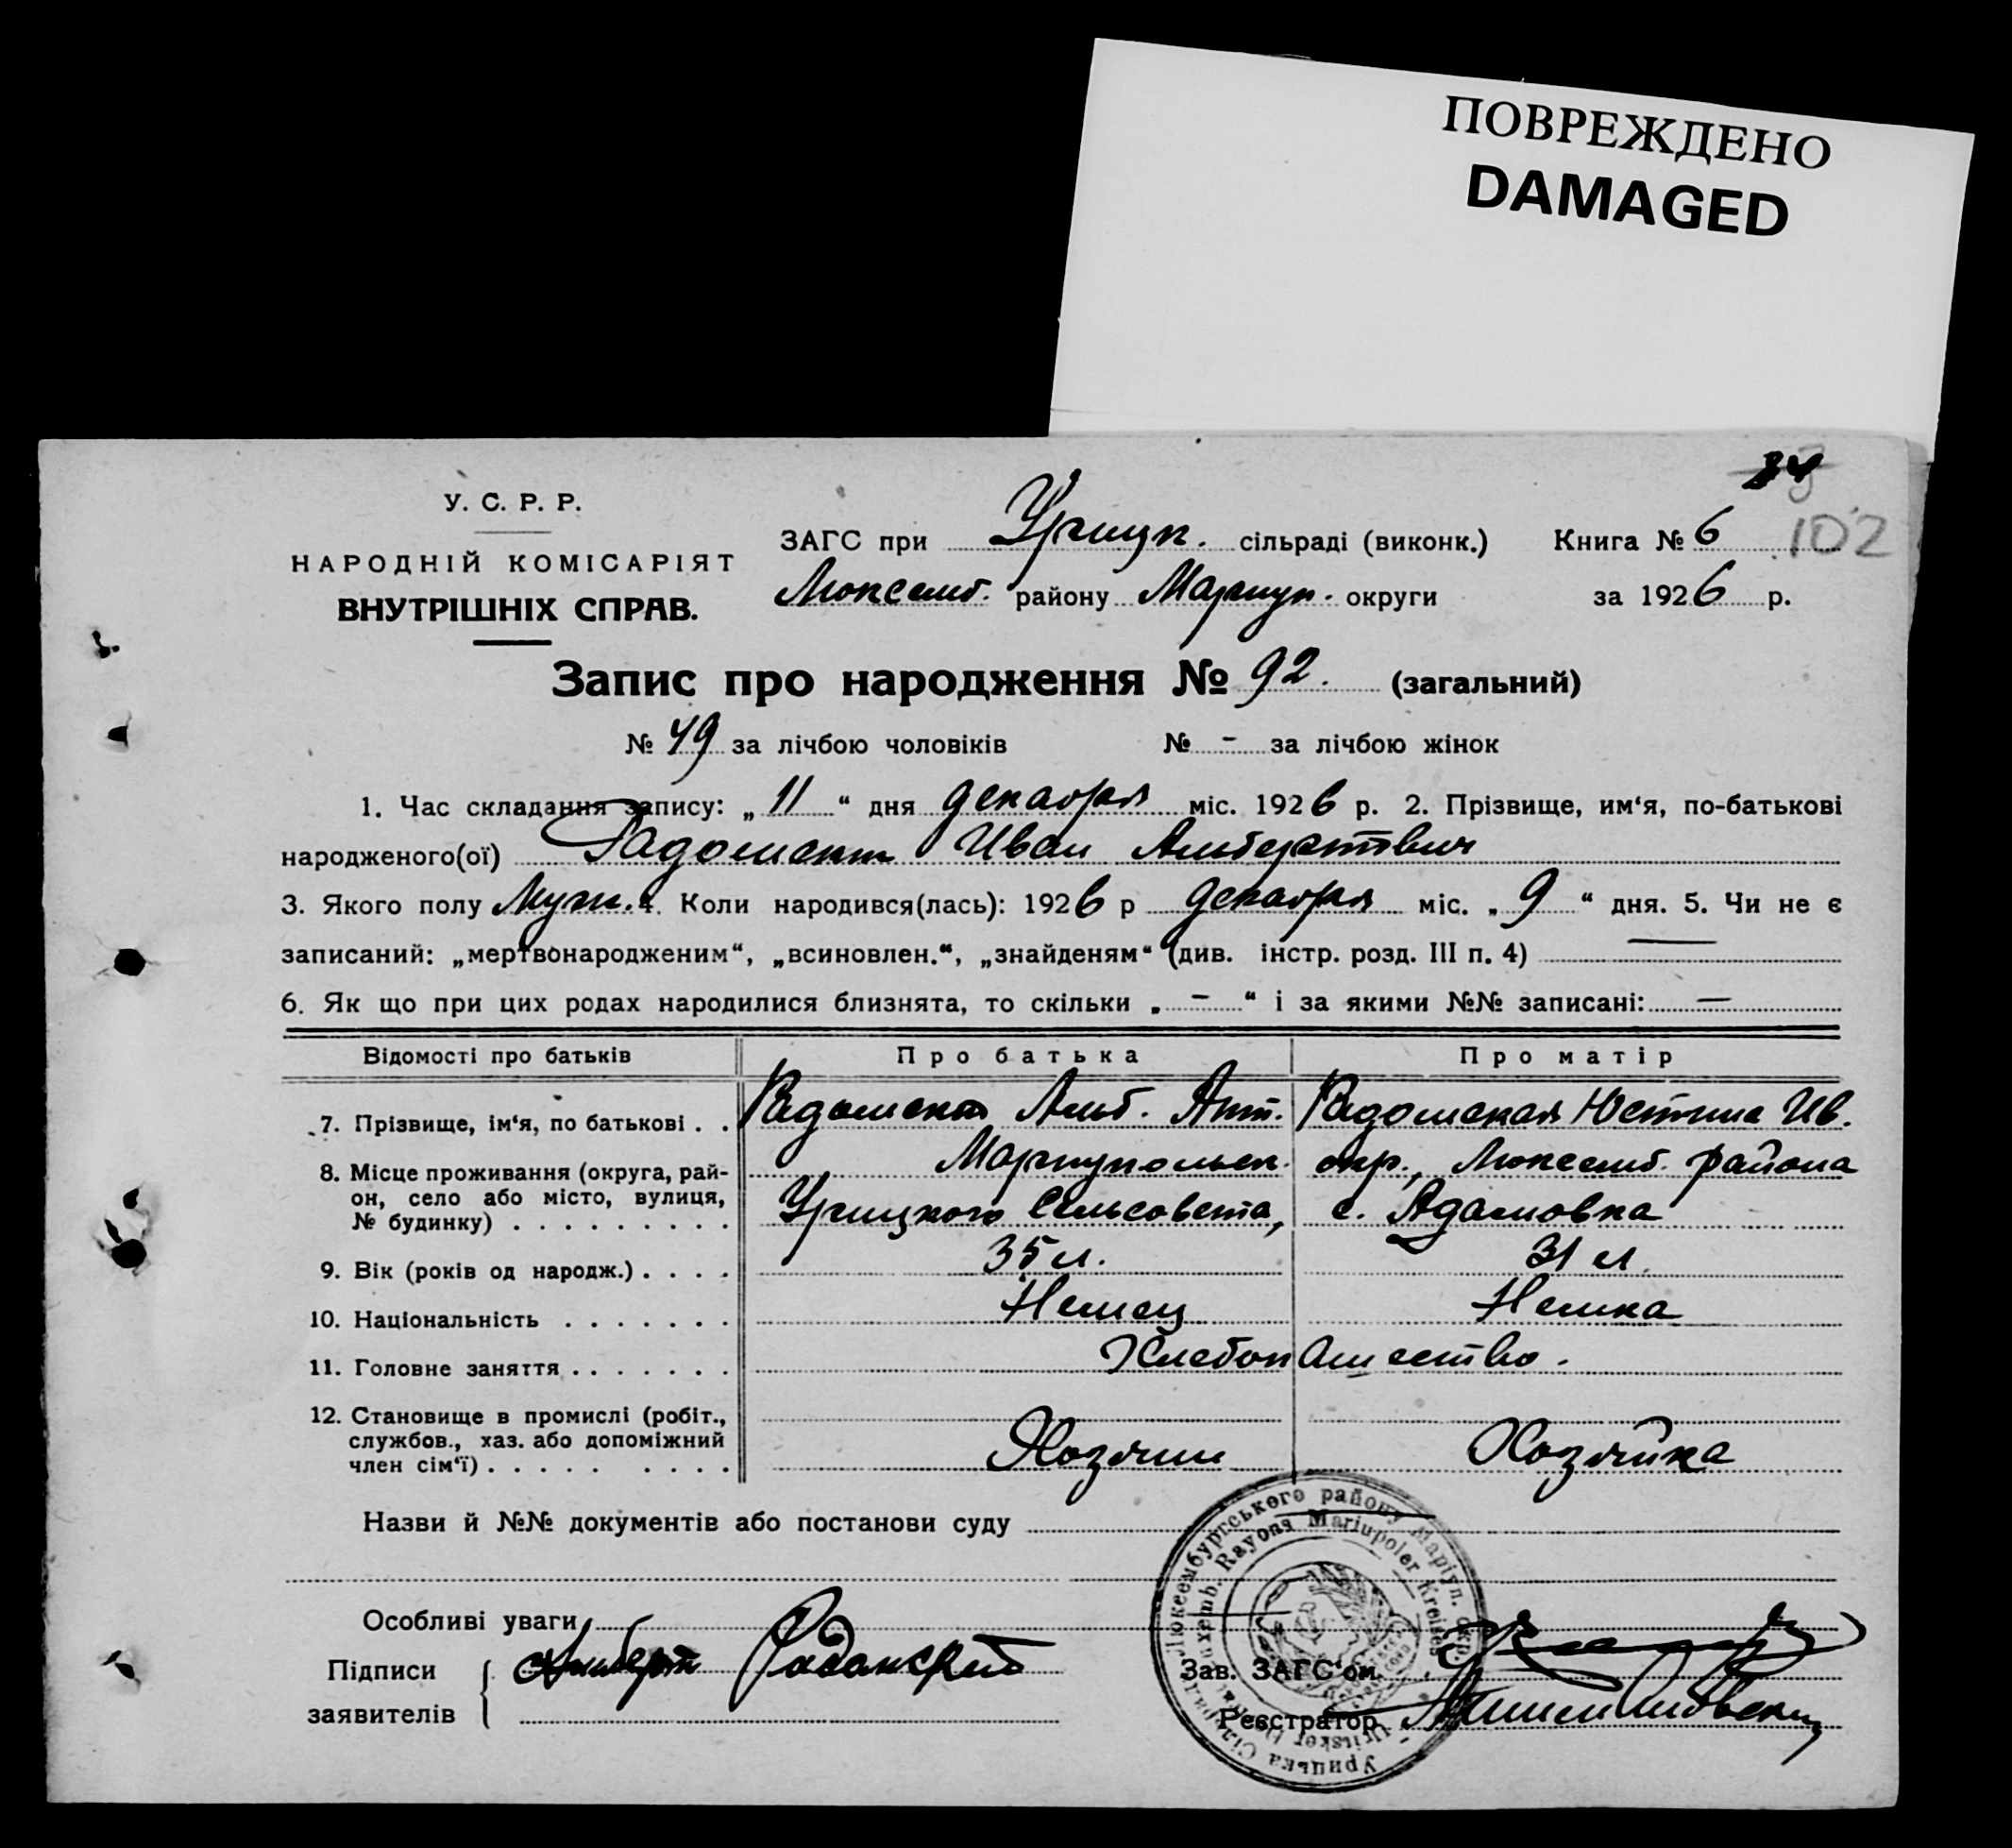 ПОВРЕЖДЕНО
DAMAGED
34
102
У. С. Р. Р.
НАРОДНІЙ КОМІСАРІЯТ
ВНУТРІШНІХ СПРАВ.
ЗАГС при Урицк. сільраді (виконк.) Книга № 6
Люксемб. району Мариуп. округи за 1926 р.
Запис про народження № 92. (загальний)
№ 49 за лічбою чоловіків № - за лічбою жінок
1. Час складання запису: „ 11 “ дня декабря міс. 1926 р. 2. Прізвище, им‘я, по-батькові
народженого(ої) Радомский Иван Альбертович
3. Якого полу Муж. 4. Коли народився(лась): 1926 р декабря міс. „ 9 “ дня. 5. Чи не є
записаний: „мертвонародженим“, „всиновлен.“, „знайденям“ (див. інстр. розд. III п. 4) —
6. Як що при цих родах народилися близнята, то скільки „ - “ і за якими №№ записані: —
Відомості про батьків Про батька Про матір
7. Прізвище, ім‘я, по батькові . . Радомский Альб. Ант. Радомская Юстина Ив.
8. Місце проживання (округа, рай-
он, село або місто, вулиця,
№ будинку) . . . . . . . . .
Мариупольск. окр., Люксемб. района
Урицкого Сельсовета, с. Адамовка
9. Вік (років од народж.) . . . . 35 л. 31 л.
10. Національність . . . . . . . Немец Немка
11. Головне заняття . . . . . . . Хлебопашество.
12. Становище в промислі (робіт.,
службов., хаз. або допоміжний
член сім‘ї) . . . . . . . . .
Хозяин Хозяйка
Назви й №№ документів або постанови суду
Особливі уваги
Підписи
заявителів
Альберт Радомский
Зав. ЗАГС‘ом
Реєстратор
Урицька Люксембургського району Маріуп.
Rayons Mariupoler Kreises